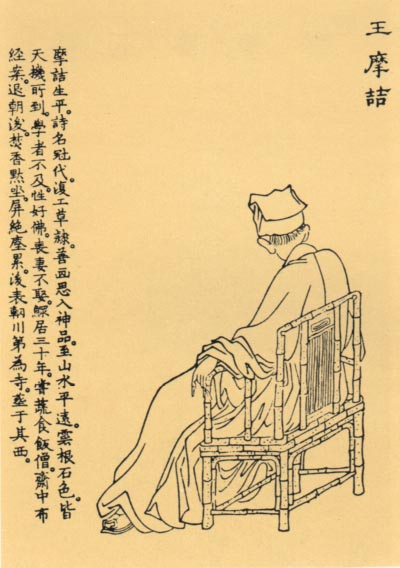 王摩詰
摩詰生平詩名冠代。復工草隸。善画思入神品。至山水平遠。雲根石色。皆
天機所到。學者不及。性好佛。喪妻不娶。鰥居三十年。嘗蔬食飯僧。齋中布
經案。退朝後。焚香默坐。屏絕塵累。後表輞川第為寺。葬于其西。